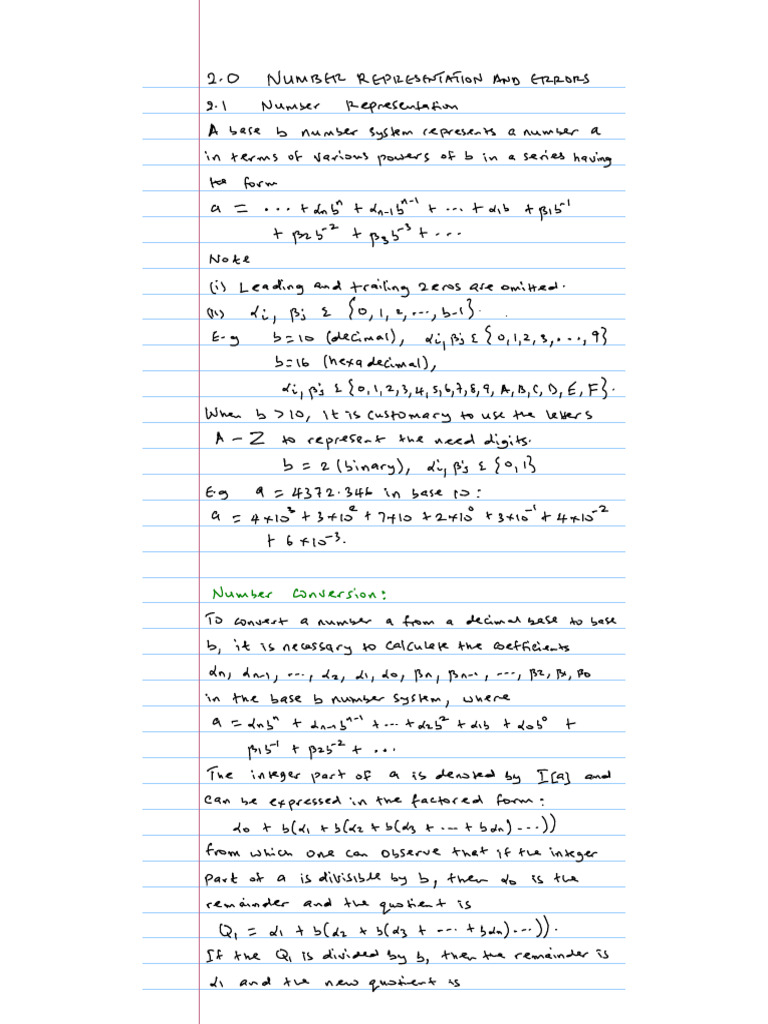 2.0 NUMBER REPRESENTATION AND ERRORS
2.1 Number Representation
A base b number system represents a number a
in terms of various powers of b in a series having
the form
a = ... + αnbⁿ + αn-1bⁿ⁻¹ + ... + α1b + β1b⁻¹
+ β2b⁻² + β3b⁻³ + ...
Note
(i) Leading and trailing zeros are omitted.
(ii) αi, βj ε {0, 1, 2, ..., b-1}.
E-g b=10 (decimal), αi, βj ε {0, 1, 2, 3, ..., 9}
b=16 (hexadecimal),
αi, βj ε {0,1,2,3,4,5,6,7,8,9, A, B, C, D, E, F}.
When b > 10, it is customary to use the letters
A - Z to represent the need digits.
b = 2 (binary), αi, βj ε {0, 1}
E.g a = 4372.346 in base 10:
a = 4×10³ + 3×10² + 7×10 + 2×10⁰ + 3×10⁻¹ + 4×10⁻²
+ 6×10⁻³.
Number Conversion:
To convert a number a from a decimal base to base
b, it is necessary to calculate the coefficients
αn, αn-1, ..., α2, α1, α0, βn, βn-1, ..., β2, β1, β0
in the base b number system, where
a = αnbⁿ + αn-1bⁿ⁻¹ + ... + α2b² + α1b + α0b⁰ +
β1b⁻¹ + β2b⁻² + ...
The integer part of a is denoted by I[a] and
can be expressed in the factored form:
α0 + b(α1 + b(α2 + b(α3 + ... + bαn)...))
from which one can observe that if the integer
part of a is divisible by b, then α0 is the
remainder and the quotient is
Q1 = α1 + b(α2 + b(α3 + ... + bαn)...)).
If the Q1 is divided by b, then the remainder is
α1 and the new quotient is